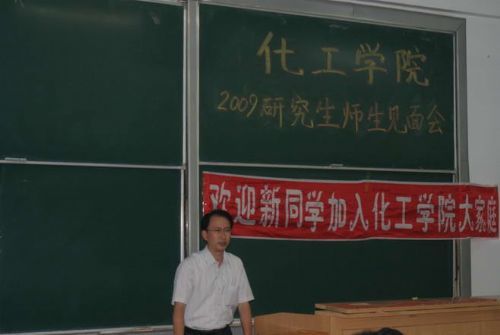 化工学院
2009研究生师生见面会
欢迎新同学加入化工学院大家庭